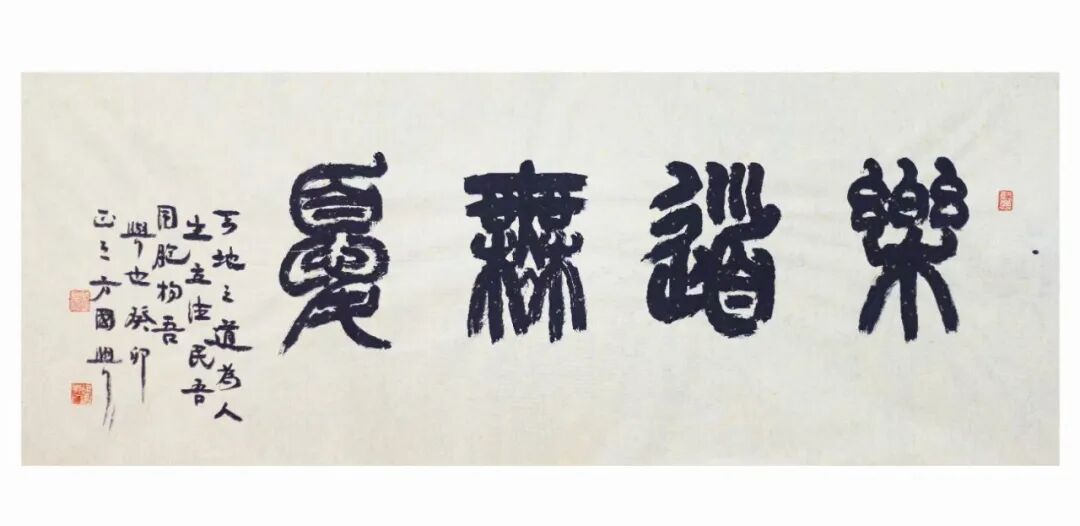 樂道無憂
天地之道為人
之立法民吾
同胞物吾
與也癸卯
方國興